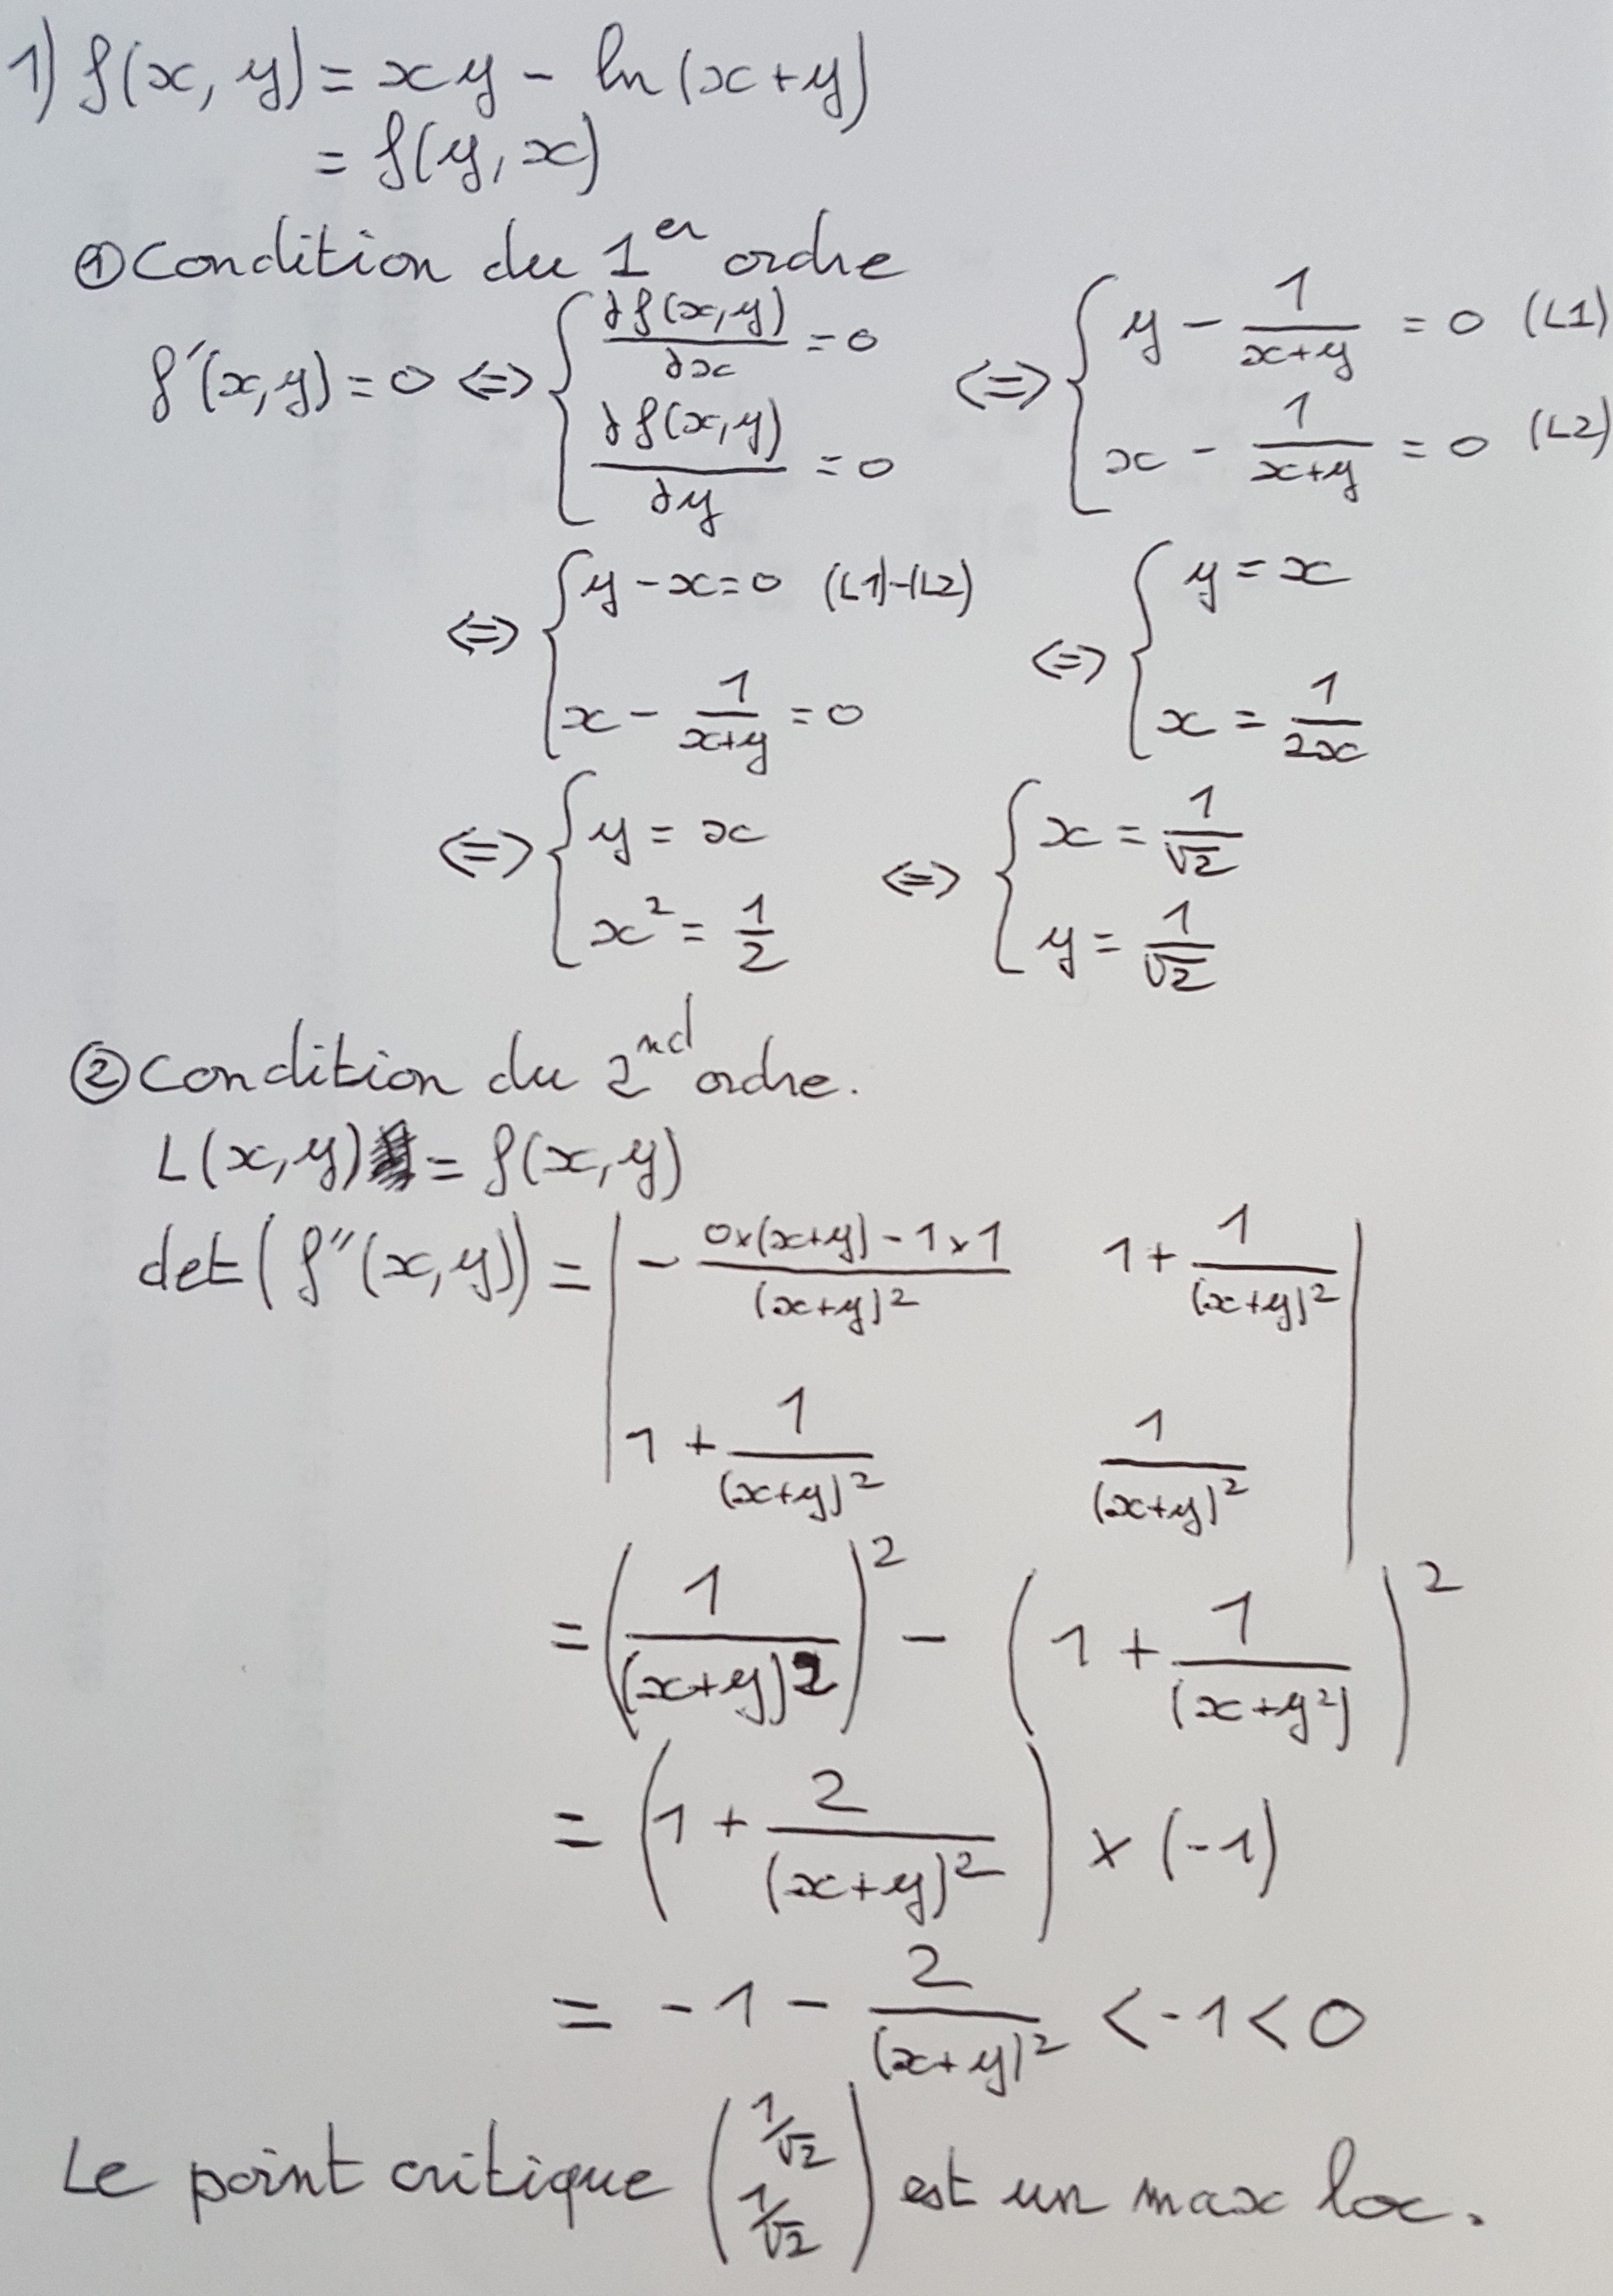 1) f(x, y) = xy - ln(x+y)
= f(y, x)
① Condition du 1er ordre
f'(x,y) = 0 ⇔ { ∂f(x,y)/∂x = 0 ; ∂f(x,y)/∂y = 0 ⇔ { y - 1/(x+y) = 0 (L1) ; x - 1/(x+y) = 0 (L2)
⇔ { y - x = 0 (L1)-(L2) ; x - 1/(x+y) = 0 ⇔ { y = x ; x = 1/2x
⇔ { y = x ; x² = 1/2 ⇔ { x = 1/√2 ; y = 1/√2
② Condition du 2nd ordre.
L(x,y) = f(x,y)
det(f''(x,y)) = | - (0×(x+y) - 1×1)/(x+y)²   1 + 1/(x+y)² |
| 1 + 1/(x+y)²   1/(x+y)² |
= (1/(x+y)2)² - (1 + 1/(x+y²))²
= (1 + 2/(x+y)²) × (-1)
= -1 - 2/(x+y)² < -1 < 0
Le point critique (1/√2 ; 1/√2) est un max loc.